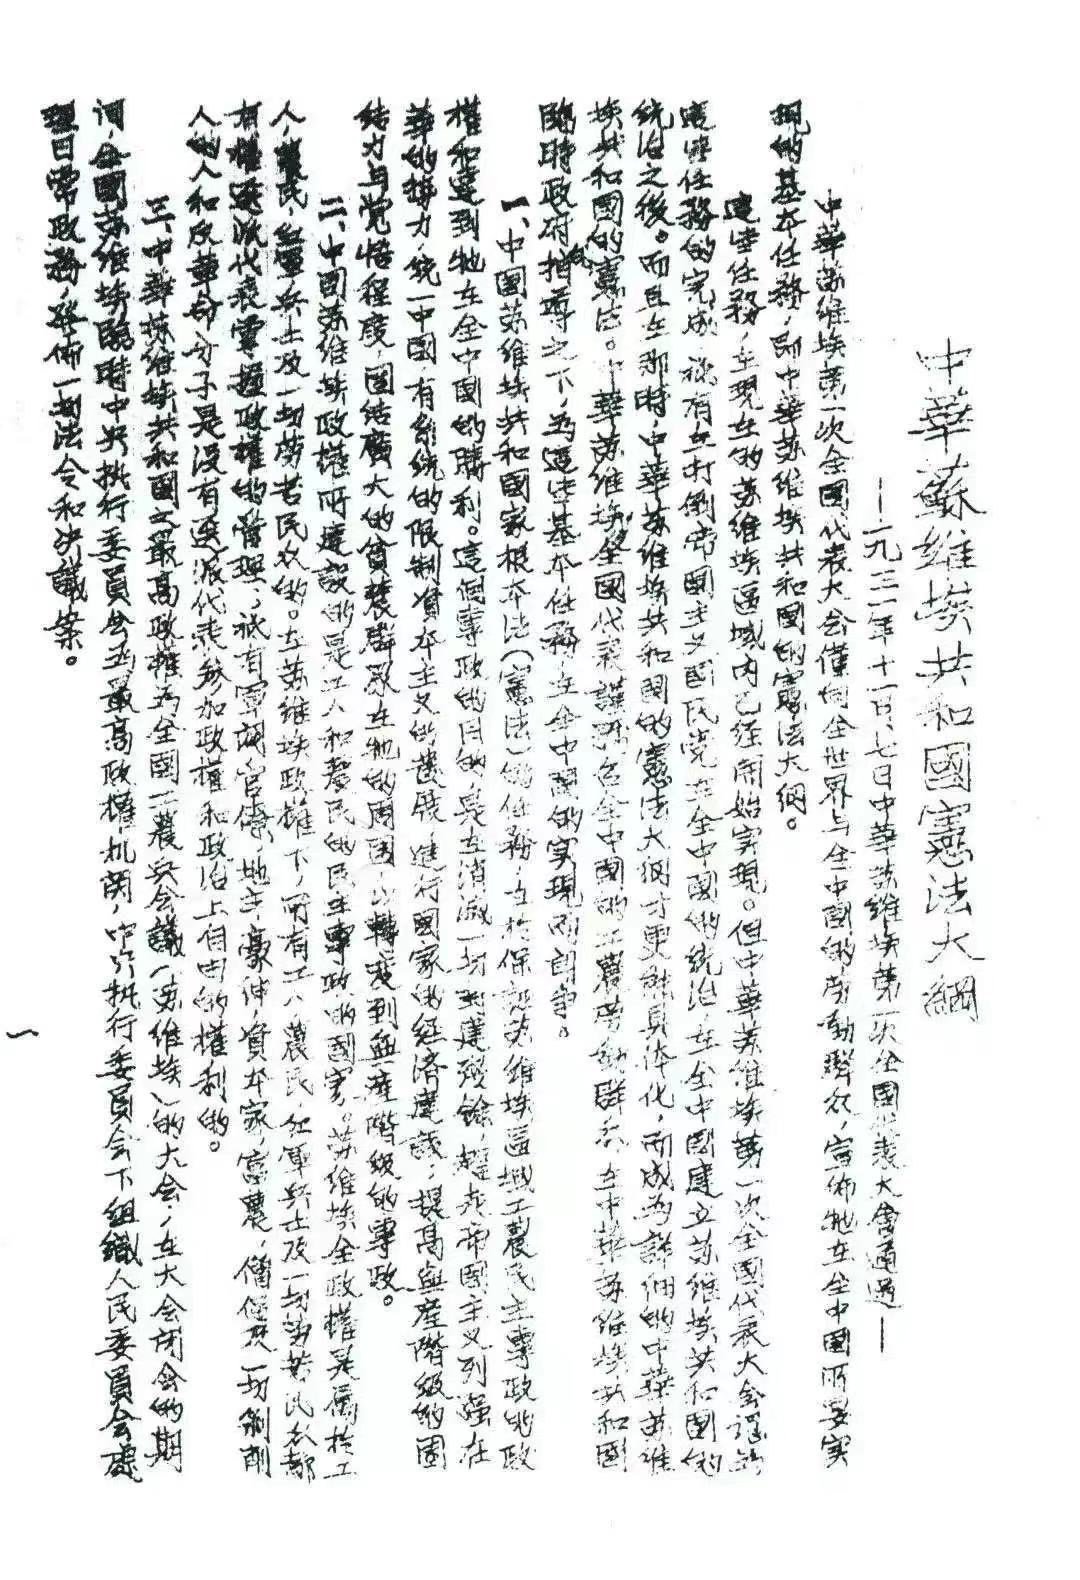 中華蘇維埃共和國憲法大綱
—一九三一年十一月七日中華苏維埃第一次全國代表大會通過—
中華苏維埃第一次全國代表大会僅向全世界与全中國的劳動羣众，宣佈牠在全中國所要实
現的基本任務，即中華苏维埃共和國的憲法大綱。
這些任務，在現在的苏維埃區域内已経開始实現。但中華苏維埃第一次全國代表大会認為
這些任務的完成，祗有在打倒帝國主义國民党在全中國的統治，在全中國建立苏維埃共和國的
統治之後。而且在那時，中華苏維埃共和國的憲法大綱才更能具体化，而成為詳细的中華苏維
埃共和國的憲法。中華苏維埃全國代表謹號召全中國的工農劳動群众，在中華苏維埃共和國
臨時政府指導之下，為這些基本任務在全中國的实現而鬥争。
一、中國苏維埃共和國家根本法（憲法）的任務，在於保証苏維埃區域工農民主專政的政
權和達到牠在全中國的勝利。這個專政的目的，是在消滅一切封建殘餘，趕走帝國主义列强在
華的勢力，統一中國，有系統的限制資本主义的發展，進行國家的経济建設，提高無産階級的團
结力与觉悟程度，團结廣大的貧農群众在牠的周圍，以轉变到無産階級的專政。
二、中國苏維埃政權所建設的是工人和農民的民主專政的國家。苏维埃全政權是属於工
人，農民，红軍兵士及一切劳苦民众的。在苏維埃政權下，所有工人，農民，红軍兵士及一切劳苦民众都
有權選派代表掌握政權的管理，祗有軍阀，官僚，地主，豪绅，資本家，富農，僧侣及一切剝削
人的人和反革命分子是没有選派代表参加政權和政治上自由的權利的。
三、中華蘇維埃共和國之最高政權為全國工農兵会議（苏維埃）的大会，在大会闭会的期
间，全國苏維埃臨時中央执行委員会為最高政權机関，中央执行委員会下组織人民委員会處
理日常政務，發佈一切法令和决議案。
一